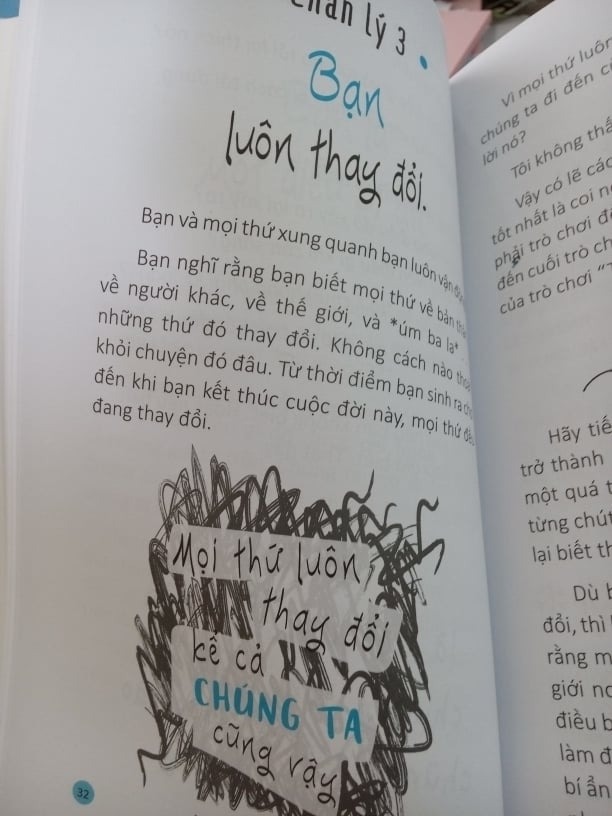 lý 3
Bạn
luôn thay đổi.
Bạn và mọi thứ xung quanh bạn luôn vận
Bạn nghĩ rằng bạn biết mọi thứ về bản
về người khác, về thế giới, và *úm ba la*
những thứ đó thay đổi. Không cách nào
khỏi chuyện đó đâu. Từ thời điểm bạn sinh ra
đến khi bạn kết thúc cuộc đời này, mọi thứ
đang thay đổi.
Mọi thứ luôn
thay đổi
kể cả
CHÚNG TA
cũng vậy
32
Vì mọi thứ luôn
chúng ta đi đến
lời nó?
Tôi không
Vậy có lẽ
tốt nhất là coi
phải trò chơi
đến cuối trò
của trò chơi
Hãy
trở thành
một quá
từng chút
lại biết
Dù
đổi, thì
rằng
giới
điều
làm
bí ẩn